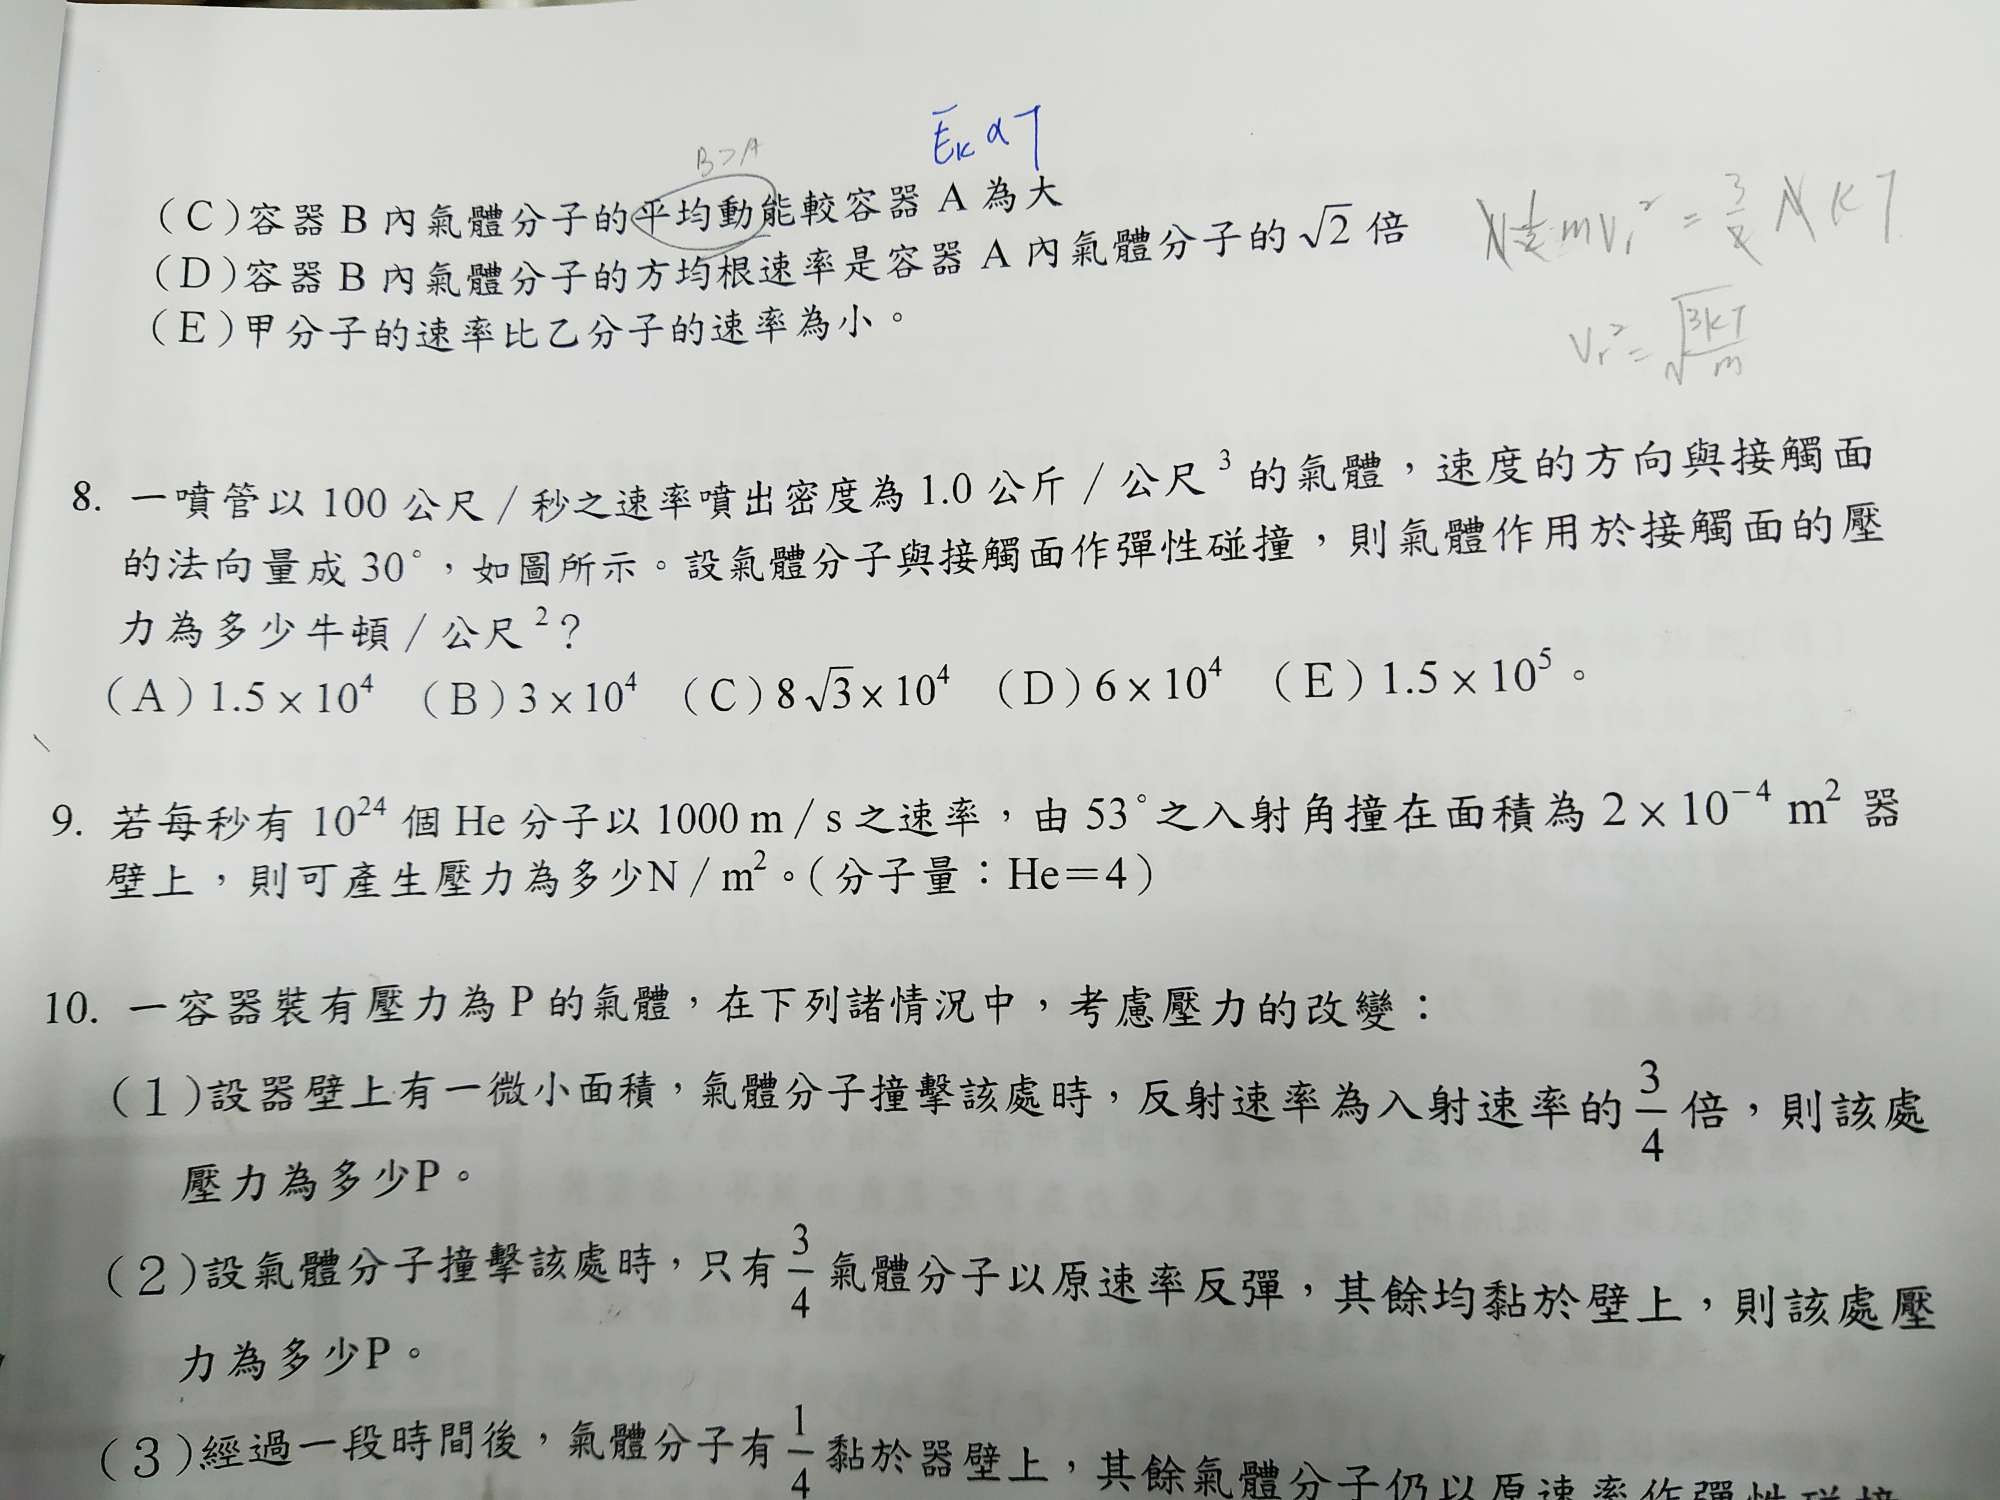 Ēₖ α T
B>A
(C)容器 B 內氣體分子的平均動能較容器 A 為大
(D)容器 B 內氣體分子的方均根速率是容器 A 內氣體分子的 √2 倍
(E)甲分子的速率比乙分子的速率為小。
N½mvᵣ² = 3/2 NkT
vᵣ² = √(3kT/m)
8. 一噴管以 100 公尺/秒之速率噴出密度為 1.0 公斤/公尺³ 的氣體,速度的方向與接觸面
的法向量成 30°,如圖所示。設氣體分子與接觸面作彈性碰撞,則氣體作用於接觸面的壓
力為多少牛頓/公尺²?
(A)1.5×10⁴ (B)3×10⁴ (C)8√3×10⁴ (D)6×10⁴ (E)1.5×10⁵。
9. 若每秒有 10²⁴ 個 He 分子以 1000 m/s 之速率,由 53°之入射角撞在面積為 2×10⁻⁴ m² 器
壁上,則可產生壓力為多少N/m²。(分子量:He=4)
10. 一容器裝有壓力為 P 的氣體,在下列諸情況中,考慮壓力的改變:
(1)設器壁上有一微小面積,氣體分子撞擊該處時,反射速率為入射速率的 3/4 倍,則該處
壓力為多少P。
(2)設氣體分子撞擊該處時,只有 3/4 氣體分子以原速率反彈,其餘均黏於壁上,則該處壓
力為多少P。
(3)經過一段時間後,氣體分子有 1/4 黏於器壁上,其餘氣體分子仍以原速率作彈性碰撞